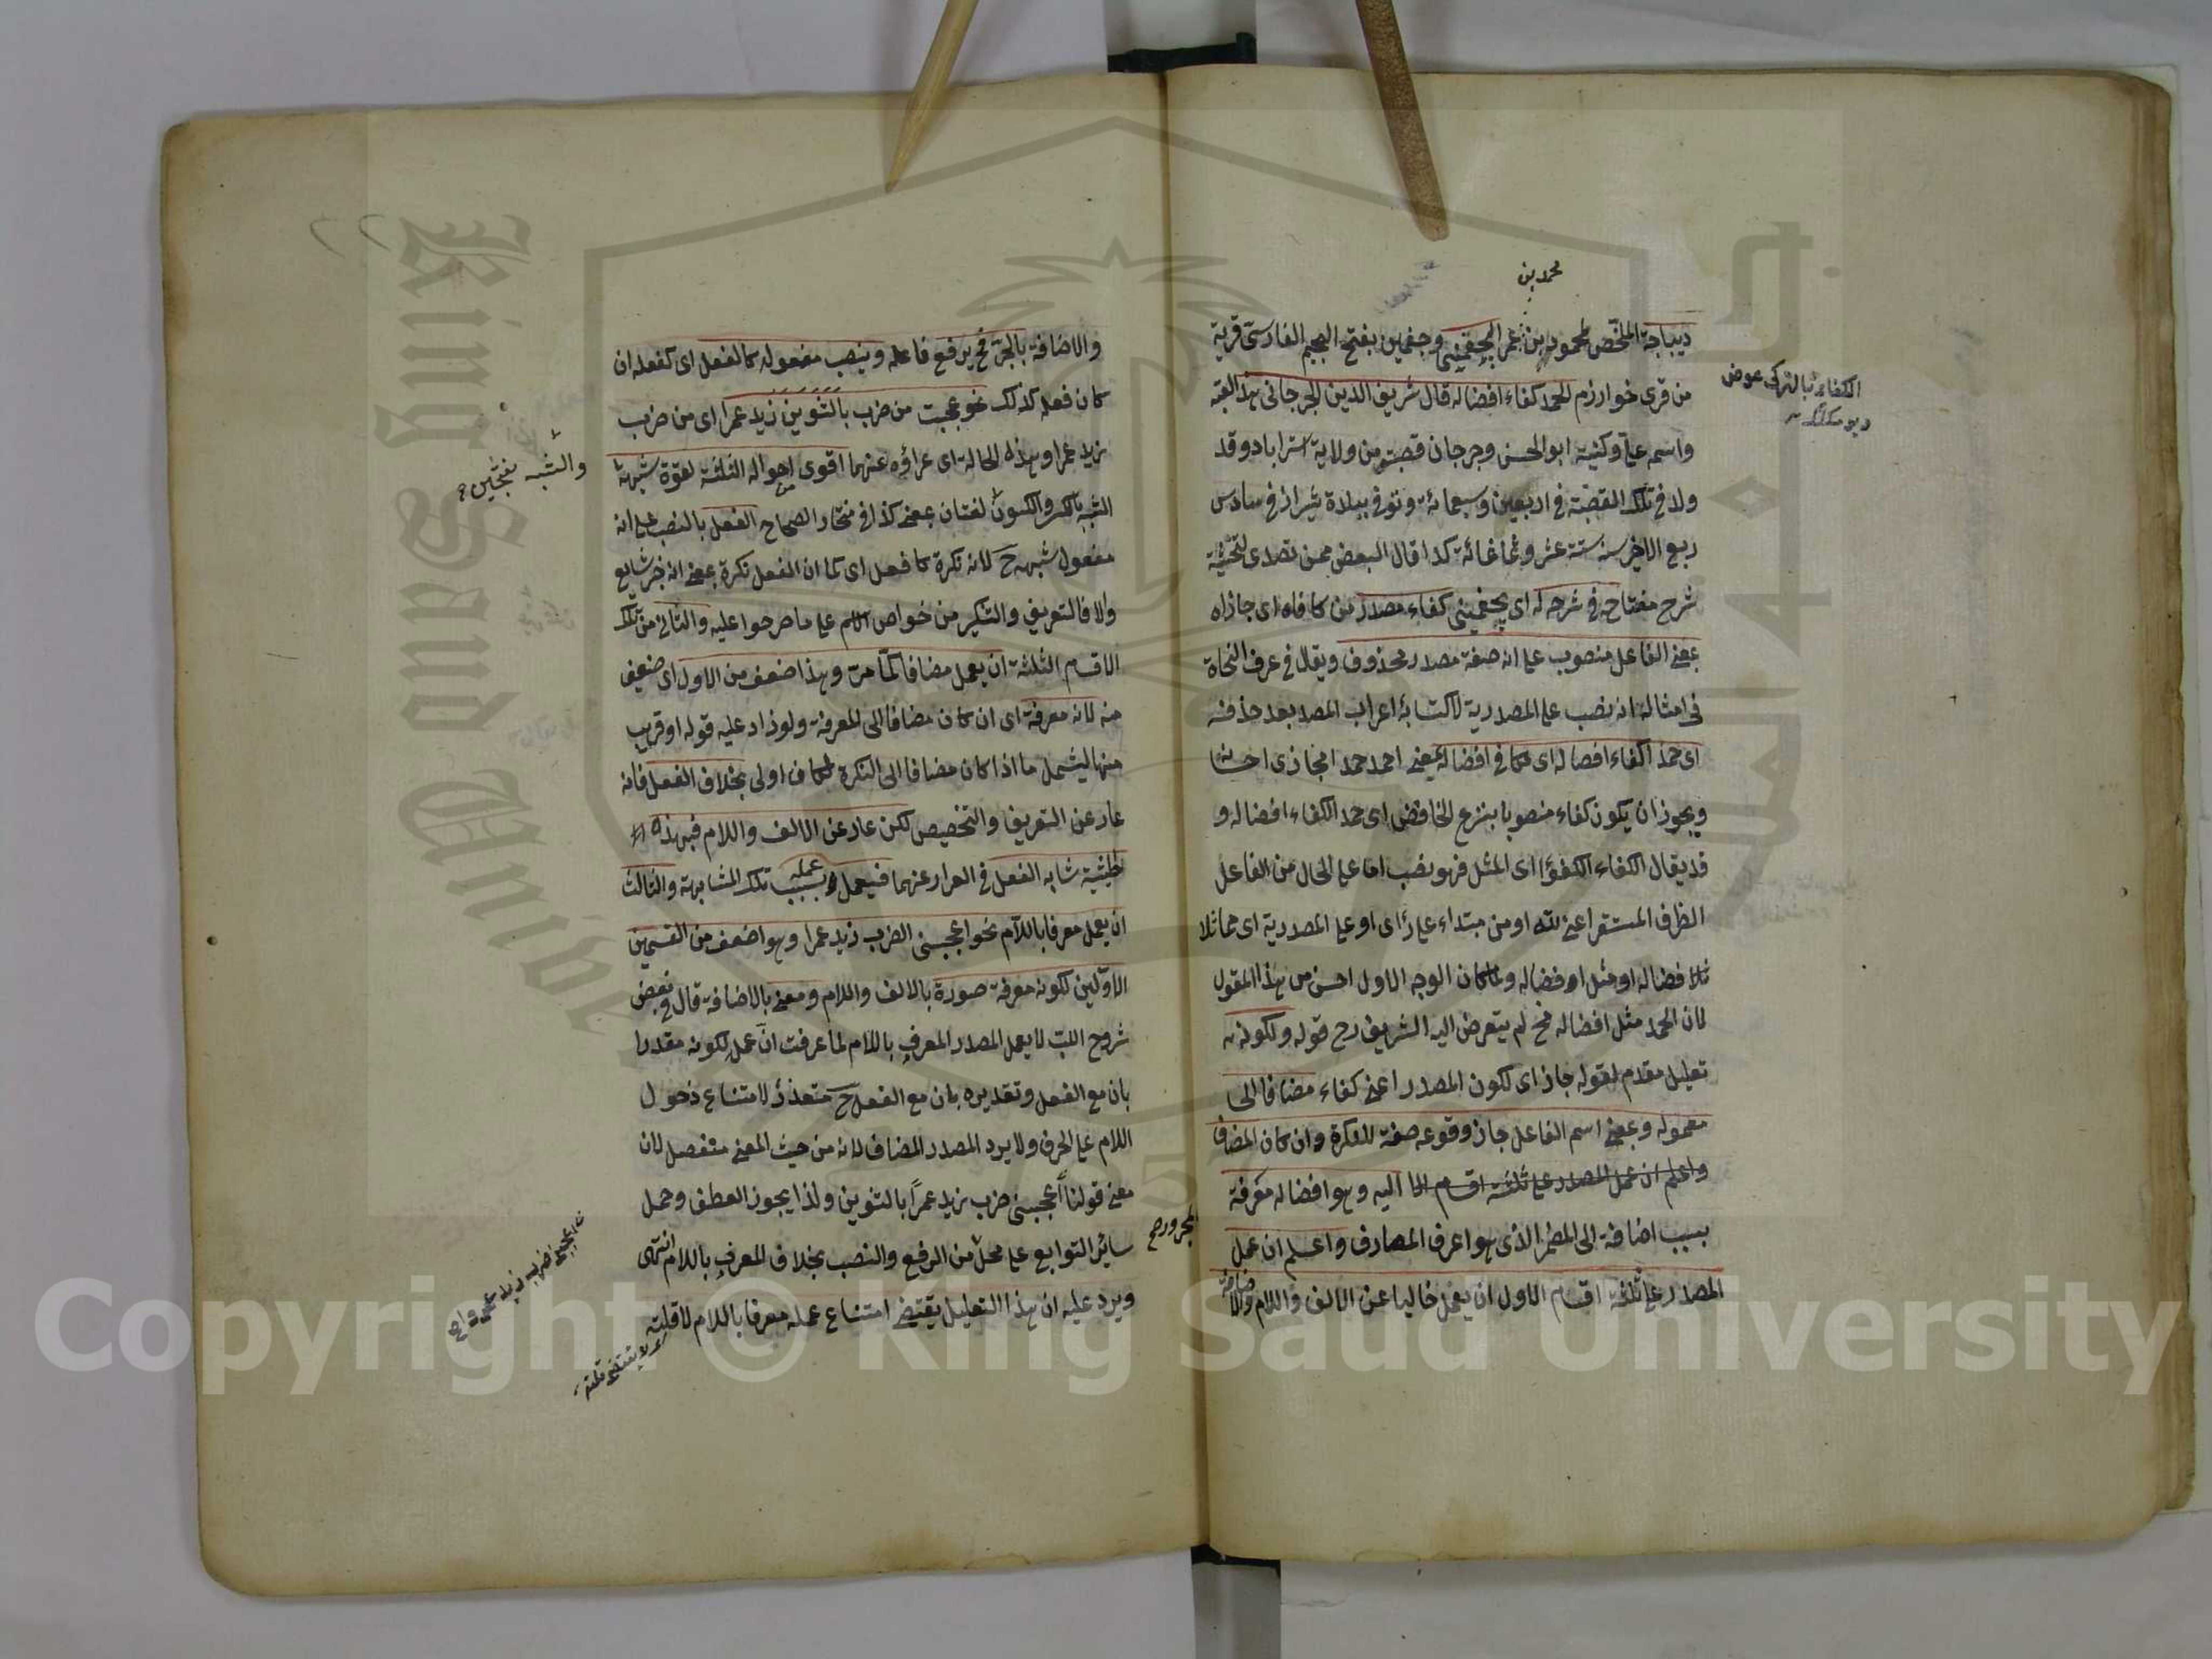 محمد بن
ديباجة الملخص لمحمود بن عمر الجغميني وجغمين بفتح الجيم الفارسي قرية
من قرى خوارزم الحمد كفاء افضاله قال شريف الدين الجرجاني هذا لقبه
واسمه علي وكنيته ابو الحسن وجرجان قصبة من ولاية استراباد وقد
ولد في تلك القصبة في اربعين وسبعمائة وتوفي ببلدة شيراز في سادس
ربيع الاخر سنة ستة عشر وثمانمائة كذا قال البعض ممن تصدى لتحشية
شرح مفتاحه في شرحه له اي لجغميني كفاء مصدر من كافاه اي جازاه
بمعنى الفاعل منصوب على انه صفة مصدر محذوف ويقال في عرف النحاة
في امثاله انه نصب على المصدرية لاكتسابه اعراب المصدر بعد حذفه
اي حمدا كفاء افضاله اي مكافي افضاله يعني احمد حمدا مجازي احسانه
ويجوز ان يكون كفاء منصوبا بنزع الخافض اي حمد الكفاء افضاله و
قد يقال الكفاء الكفؤ اي المثل فهو نصب اما على الحال من الفاعل
الظرف المستقر اعني لله او من مبتداء على رأي او على المصدرية اي مماثلا
لافضاله او مثل افضاله ولما كان الوجه الاول احسن من هذا المقول
لان الحمد مثل افضاله مح لم يتعرض اليه الشريف رح قوله ولكونه
تعليل مقدم لقوله جاز اي لكون المصدر اعني كفاء مضافا الى
معموله وبمعنى اسم الفاعل جاز وقوعه صفة للنكرة وان كان المضاف
واعلم ان عمل المصدر على ثلثة اقسام الا اليه وهو افضاله معرفة
بسبب اضافته الى المضمر الذي هو اعرف المعارف واعلم ان عمل
المصدر على ثلثة اقسام الاول ان يعمل خاليا عن الالف واللام والاضافة
الكفاء بالتركي عوض
ديو مكدر
والاضافة بالجر فح يرفع فاعله وينصب مفعوله كالفعل اي كفعله ان
كان فعله كذلك نحو عجبت من ضرب بالتنوين زيد عمرا اي من ضرب
زيد عمرا وهذه الحالة اي عراؤه عنهما اقوى احواله الثلثة لقوة شبهه
الشبه بالكسر والسكون لغتان بمعنى كذا في مختار الصحاح الفعل بالنصب على انه
مفعول شبهه ح لانه نكرة كالفعل اي كما ان الفعل نكرة بمعنى انه خبر شايع
والا فالتعريف والتنكير من خواص الاسم على ما صرحوا عليه والثاني من تلك
الاقسام الثلثة ان يعمل مضافا كما مر وهذا اضعف من الاول اي ضعيف
منه لانه معرفة اي ان كان مضافا الى المعرفة ولو زاد عليه قوله او قريب
منها ليشمل ما اذا كان مضافا الى النكرة لكان اولى بخلاف الفعل فانه
عار عن التعريف والتخصيص لكن عار عن الالف واللام فبهذه
الحيثية شابه الفعل في العراء عنهما فيعمل عمله بسبب تلك المشابهة والثالث
ان يعمل معرفا باللام نحو اعجبني الضرب زيد عمرا وهو اضعف من القسمين
الاولين لكونه معرفة صورة بالالف واللام ومعنى بالاضافة قال في بعض
شروح اللب لا يعمل المصدر المعرف باللام لما عرفت ان عمله لكونه مقدرا
بان مع الفعل وتقديره بان مع الفعل ح متعذر لامتناع دخول
اللام على الحرف ولا يرد المصدر المضاف لانه من حيث المعنى منفصل لان
معنى قولنا اعجبني ضرب زيد عمرا بالتنوين ولذا يجوز العطف وحمل
سائر التوابع على محل من الرفع والنصب بخلاف المعرف باللام انتهى
ويرد عليه ان هذا التعليل يقتضي امتناع عمله معرفا باللام لا قلته
والشبه بفتحتين
المجرور صح
اعجبني ضرب زيد
اي لا يقتضي قلته
Copyright © King Saud University
King Saud University